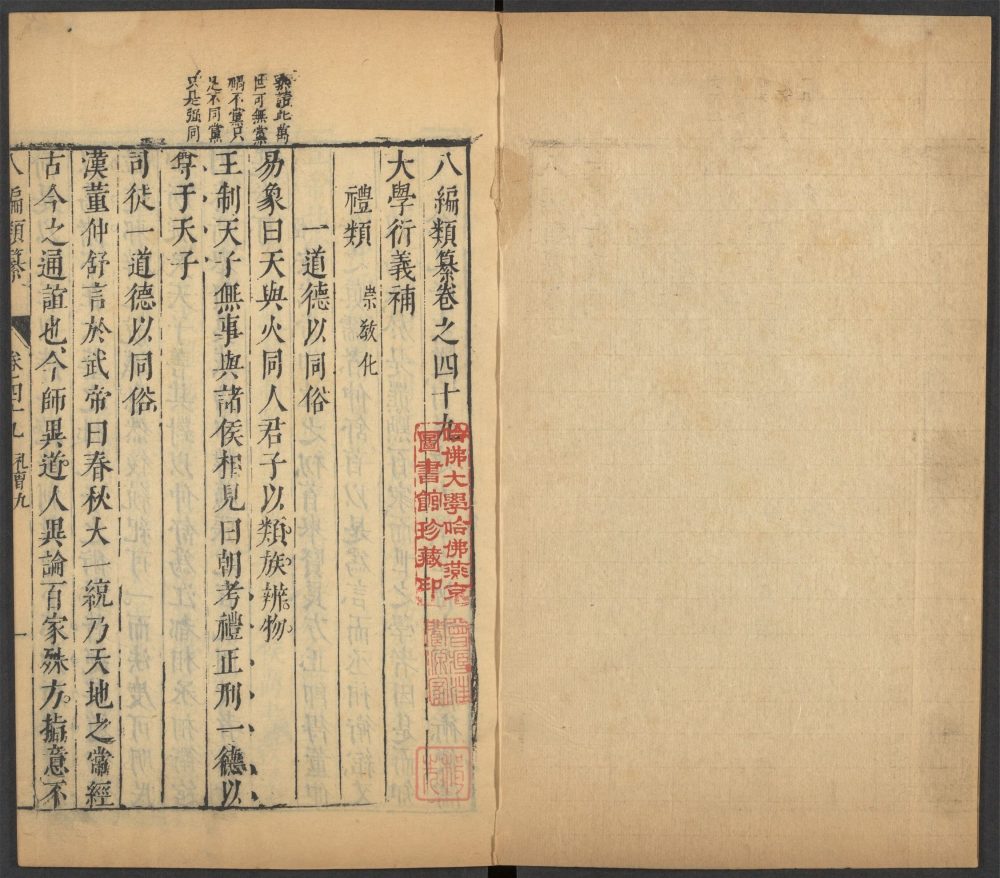 八編類纂卷之四十九
大學衍義補
禮類 崇敎化
一道德以同俗
易象曰天與火同人君子以類族辨物
王制天子無事與諸侯相見曰朝考禮正刑一德以
尊于天子
司徒一道德以同俗
漢董仲舒言於武帝曰春秋大一統乃天地之常經
古今之通誼也今師異道人異論百家殊方指意不
八編類纂 卷四十九 禮 九 一
此萬
世可無黨
禍不黨只
是不同黨
只是強同
哈佛大學哈佛燕京
圖書館珍藏印